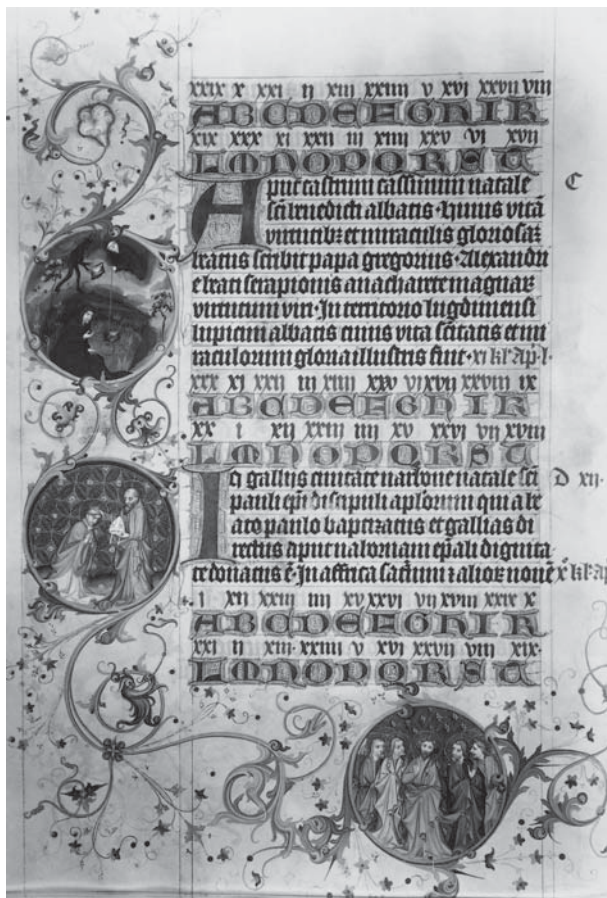 xxix x xxi ij xiii xxiiii v xvi xxvii viii
A B C D E F G H I K
xix xxx xi xxii iii xiiii xxv vi xvii
L M N O P Q R S T
Aput castrum cassinum natale
sci benedicti abbatis. Huius vitā
virtutibz et miraculis gloriosaz
beatus scribit papa gregorius. Alexandri
e beati serapionis anachorete magnaꝝ
virtutum viri. In territorio lugdunensi
lupicini abbatis cuius vita scitatis et mi
raculorum gloria illustris fuit. xi kl apl.
C
xxx xi xxii iii xiiii xxv vi xvii xxviii ix
A B C D E F G H I K
xx i xii xxiii iiii xv xxvi vii xviii
L M N O P Q R S T
In gallijs ciuitate narbone natale sci
D xii.
pauli epi discipuli aplorum qui a be
ato paulo baptizatus et gallias di
rectus aput narbonam epali dignita
te donatus ē. In affrica saturnini et alioꝝ nouē x kl ap
i xii xxiii iiii xv xxvi vii xviii xxix x
A B C D E F G H I K
xxi ij xiii. xxiiii v xvi xxvii viii xix.
L M N O P Q R S T